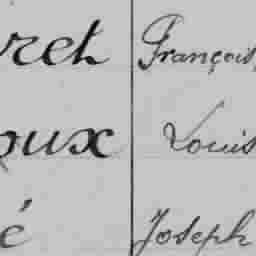 ret François,
oux Louis
é Joseph